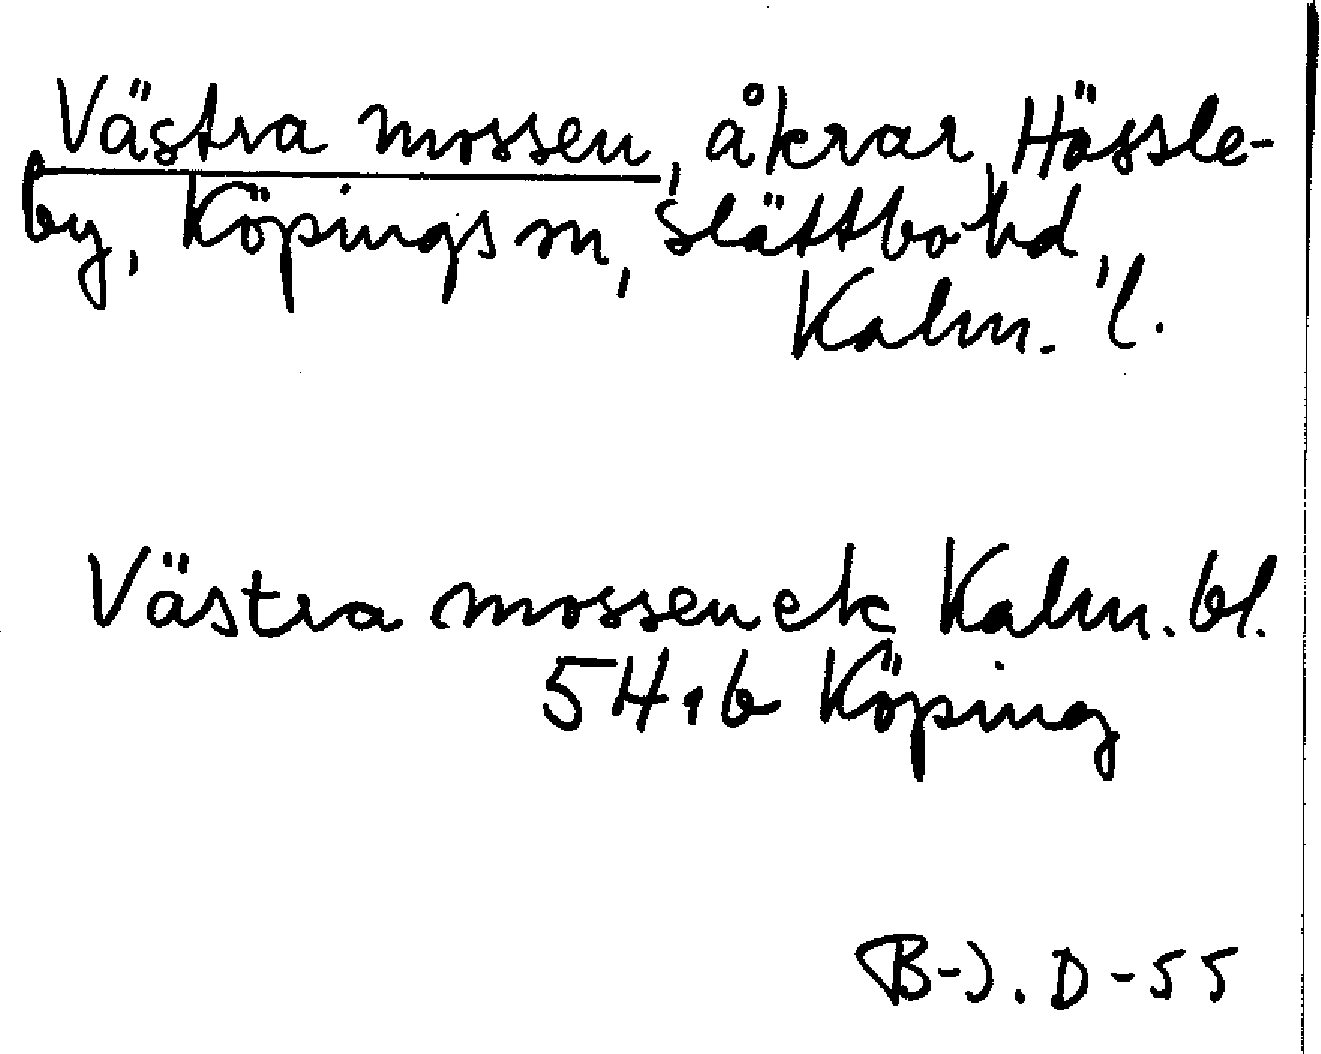 Västra mossen, åkrar, Hässle-
by, Köpings sn, Slättbo hd,
Kalm. l.
Västra mossen ek Kalm. bl.
5H1b Köping
B-J. D-55